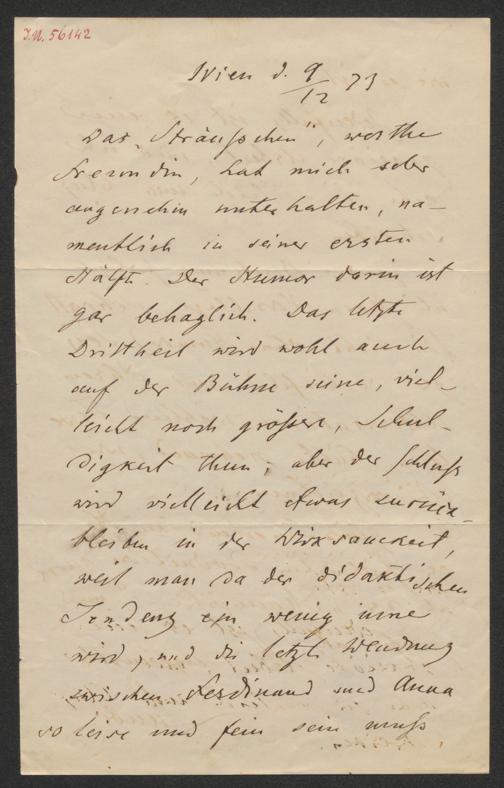 I.N. 56142
Wien d. 9/12 73
Das „Sträußchen", werthe
Freundin, hat mich sehr
angenehm unterhalten, na-
mentlich in seiner ersten
Hälfte. Der Humor darin ist
gar behaglich. Das letzte
Drittheil wird wohl auch
auf der Bühne seine, viel-
leicht noch größere, Schul-
digkeit thun; aber der Schluß
wird vielleicht etwas zurück-
bleiben in der Wirksamkeit,
weil man da der didaktischen
Tendenz ein wenig inne
wird, und die letzte Wendung
zwischen Ferdinand und Anna
so leise und fein sein muß